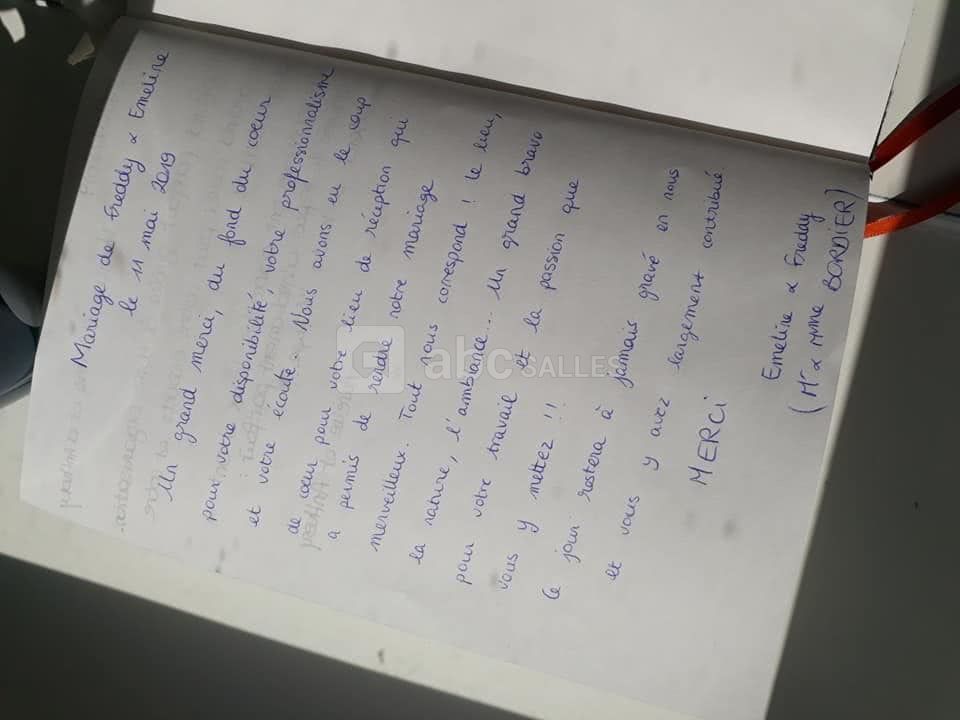 Mariage de Freddy & Emeline
le 11 mai 2019
Un grand merci, du fond du coeur
pour votre disponibilité, votre professionnalisme
et votre écoute. Nous avons eu le coup
de coeur pour votre lieu de réception qui
a permis de rendre notre mariage
merveilleux. Tout nous correspond ! le lieu,
la nature, l'ambiance... Un grand bravo
pour votre travail et la passion que
vous y mettez !!
Ce jour restera à jamais gravé en nous
et vous y avez largement contribué
MERCI
Emeline & Freddy
(Mr & Mme BORDIER)
abc SALLES